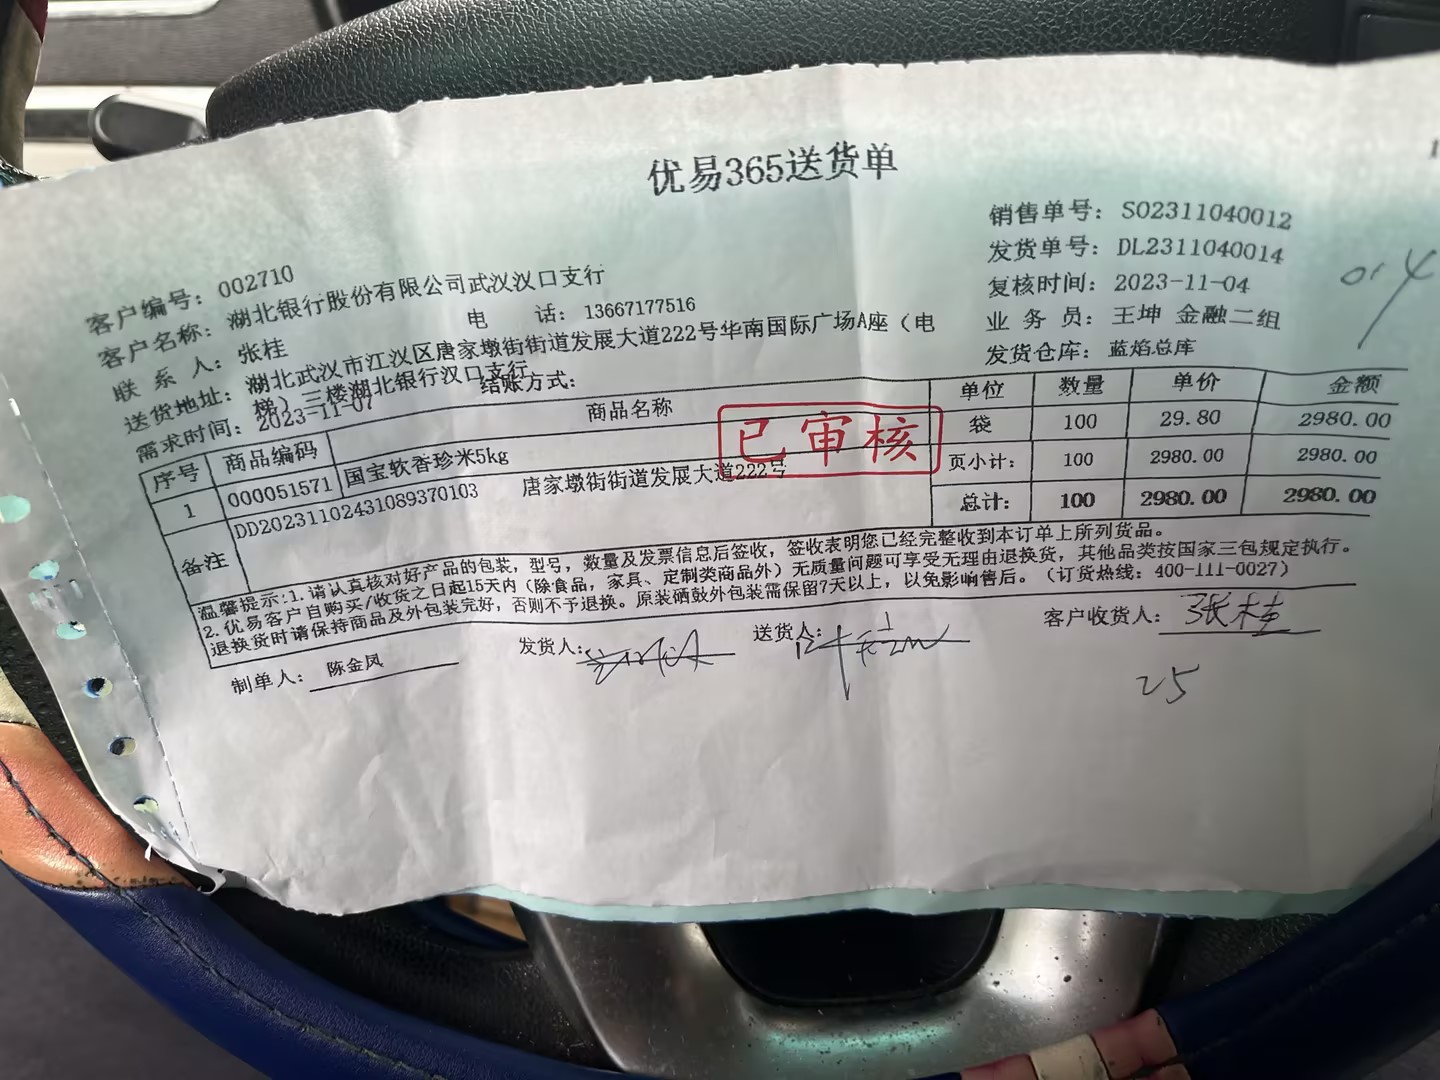 优易365送货单
销售单号: SO2311040012
发货单号: DL2311040014
复核时间: 2023-11-04
业 务 员: 王坤 金融二组
发货仓库: 蓝焰总库
客户编号: 002710
客户名称: 湖北银行股份有限公司武汉汉口支行
联 系 人: 张桂 电 话: 13667177516
送货地址: 湖北武汉市江汉区唐家墩街街道发展大道222号华南国际广场A座（电
梯）三楼湖北银行汉口支行
需求时间: 2023-11-07 结账方式:
序号 商品编码 商品名称 单位 数量 单价 金额
1 000051571 国宝软香珍米5kg 袋 100 29.80 2980.00
备注 DD20231102431089370103 唐家墩街街道发展大道222号 页小计: 100 2980.00 2980.00
总计: 100 2980.00 2980.00
已审核
温馨提示:1. 请认真核对好产品的包装，型号，数量及发票信息后签收，签收表明您已经完整收到本订单上所列货品。
2. 优易客户自购买/收货之日起15天内（除食品，家具、定制类商品外）无质量问题可享受无理由退换货，其他品类按国家三包规定执行。
退换货时请保持商品及外包装完好，否则不予退换。原装硒鼓外包装需保留7天以上，以免影响售后。（订货热线: 400-111-0027）
制单人: 陈金凤 发货人: 送货人: 客户收货人: 张桂
25